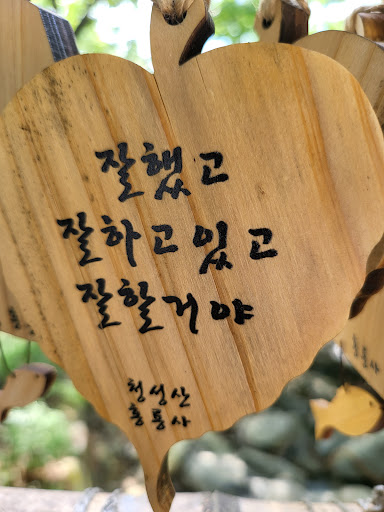 잘했고
잘하고있고
잘할거야
천성산
홍룡사